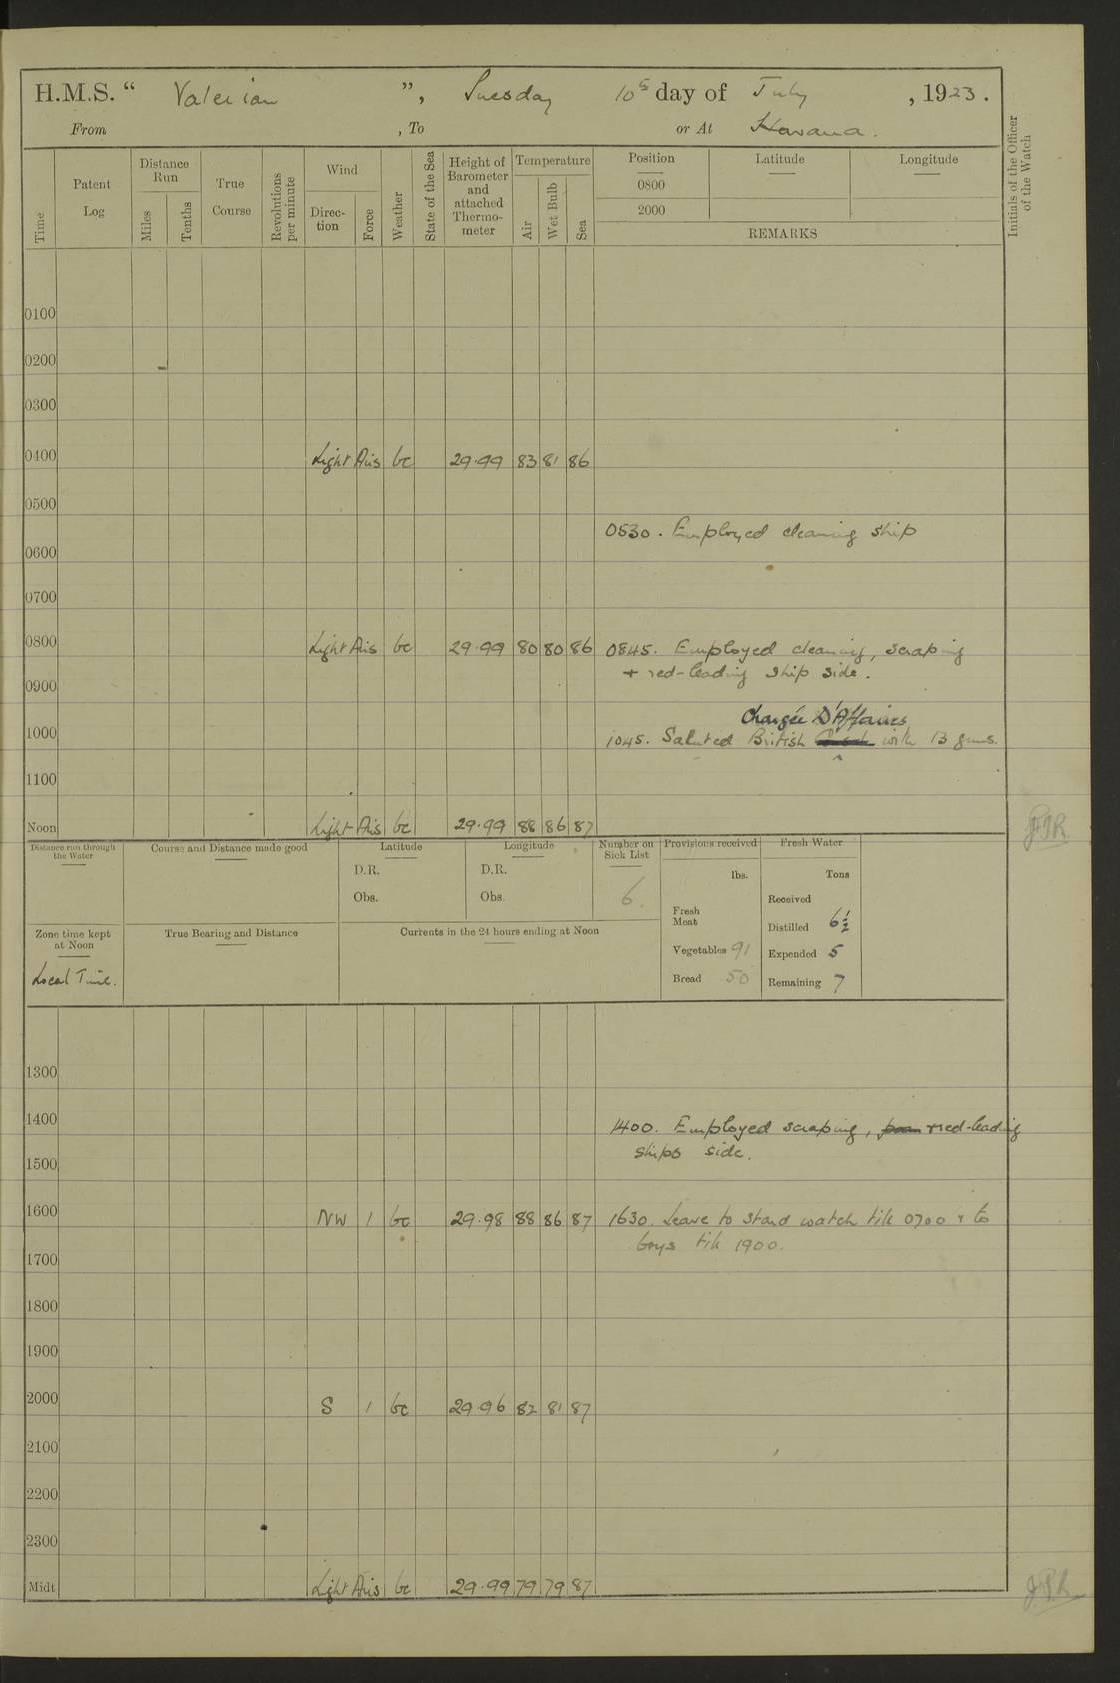 H.M.S. “ Valerian ”, Tuesday 10th day of July , 1923.
From , To or At Havana.
Time
Patent Log
Distance Run
Miles
Tenths
True Course
Revolutions per minute
Wind
Direc-tion
Force
Weather
State of the Sea
Height of Barometer and attached Thermo-meter
Temperature
Air
Wet Bulb
Sea
Position Latitude Longitude
0800
2000
REMARKS
Initials of the Officer of the Watch
0100
0200
0300
0400 Light Airs bc 29.99 83 81 86
0500
0530. Employed cleaning ship
0600
0700
0800 Light Airs bc 29.99 80 80 86 0845. Employed cleaning, scraping
+ red-leading ship side.
0900
Chargée D'Affaires
1000 1045. Saluted British with 13 guns.
^
1100
Noon Light Airs bc 29.99 88 86 87
Distance run through the Water
Course and Distance made good
Latitude
D.R.
Obs.
Longitude
D.R.
Obs.
Number on Sick List
6.
Provisions received
lbs.
Fresh Meat
Vegetables 91
Bread 50
Fresh Water
Tons
Received
Distilled 6½
Expended 5
Remaining 7
Zone time kept at Noon
Local Time.
True Bearing and Distance
Currents in the 24 hours ending at Noon
1300
1400 1400. Employed scraping, + red-leading
ships side.
1500
1600 NW 1 bc 29.98 88 86 87 1630. Leave to stard watch till 0700 + to
boys till 1900.
1700
1800
1900
2000 S 1 bc 29.96 82 81 87
2100
2200
2300
Midt Light Airs bc 29.99 79 79 87